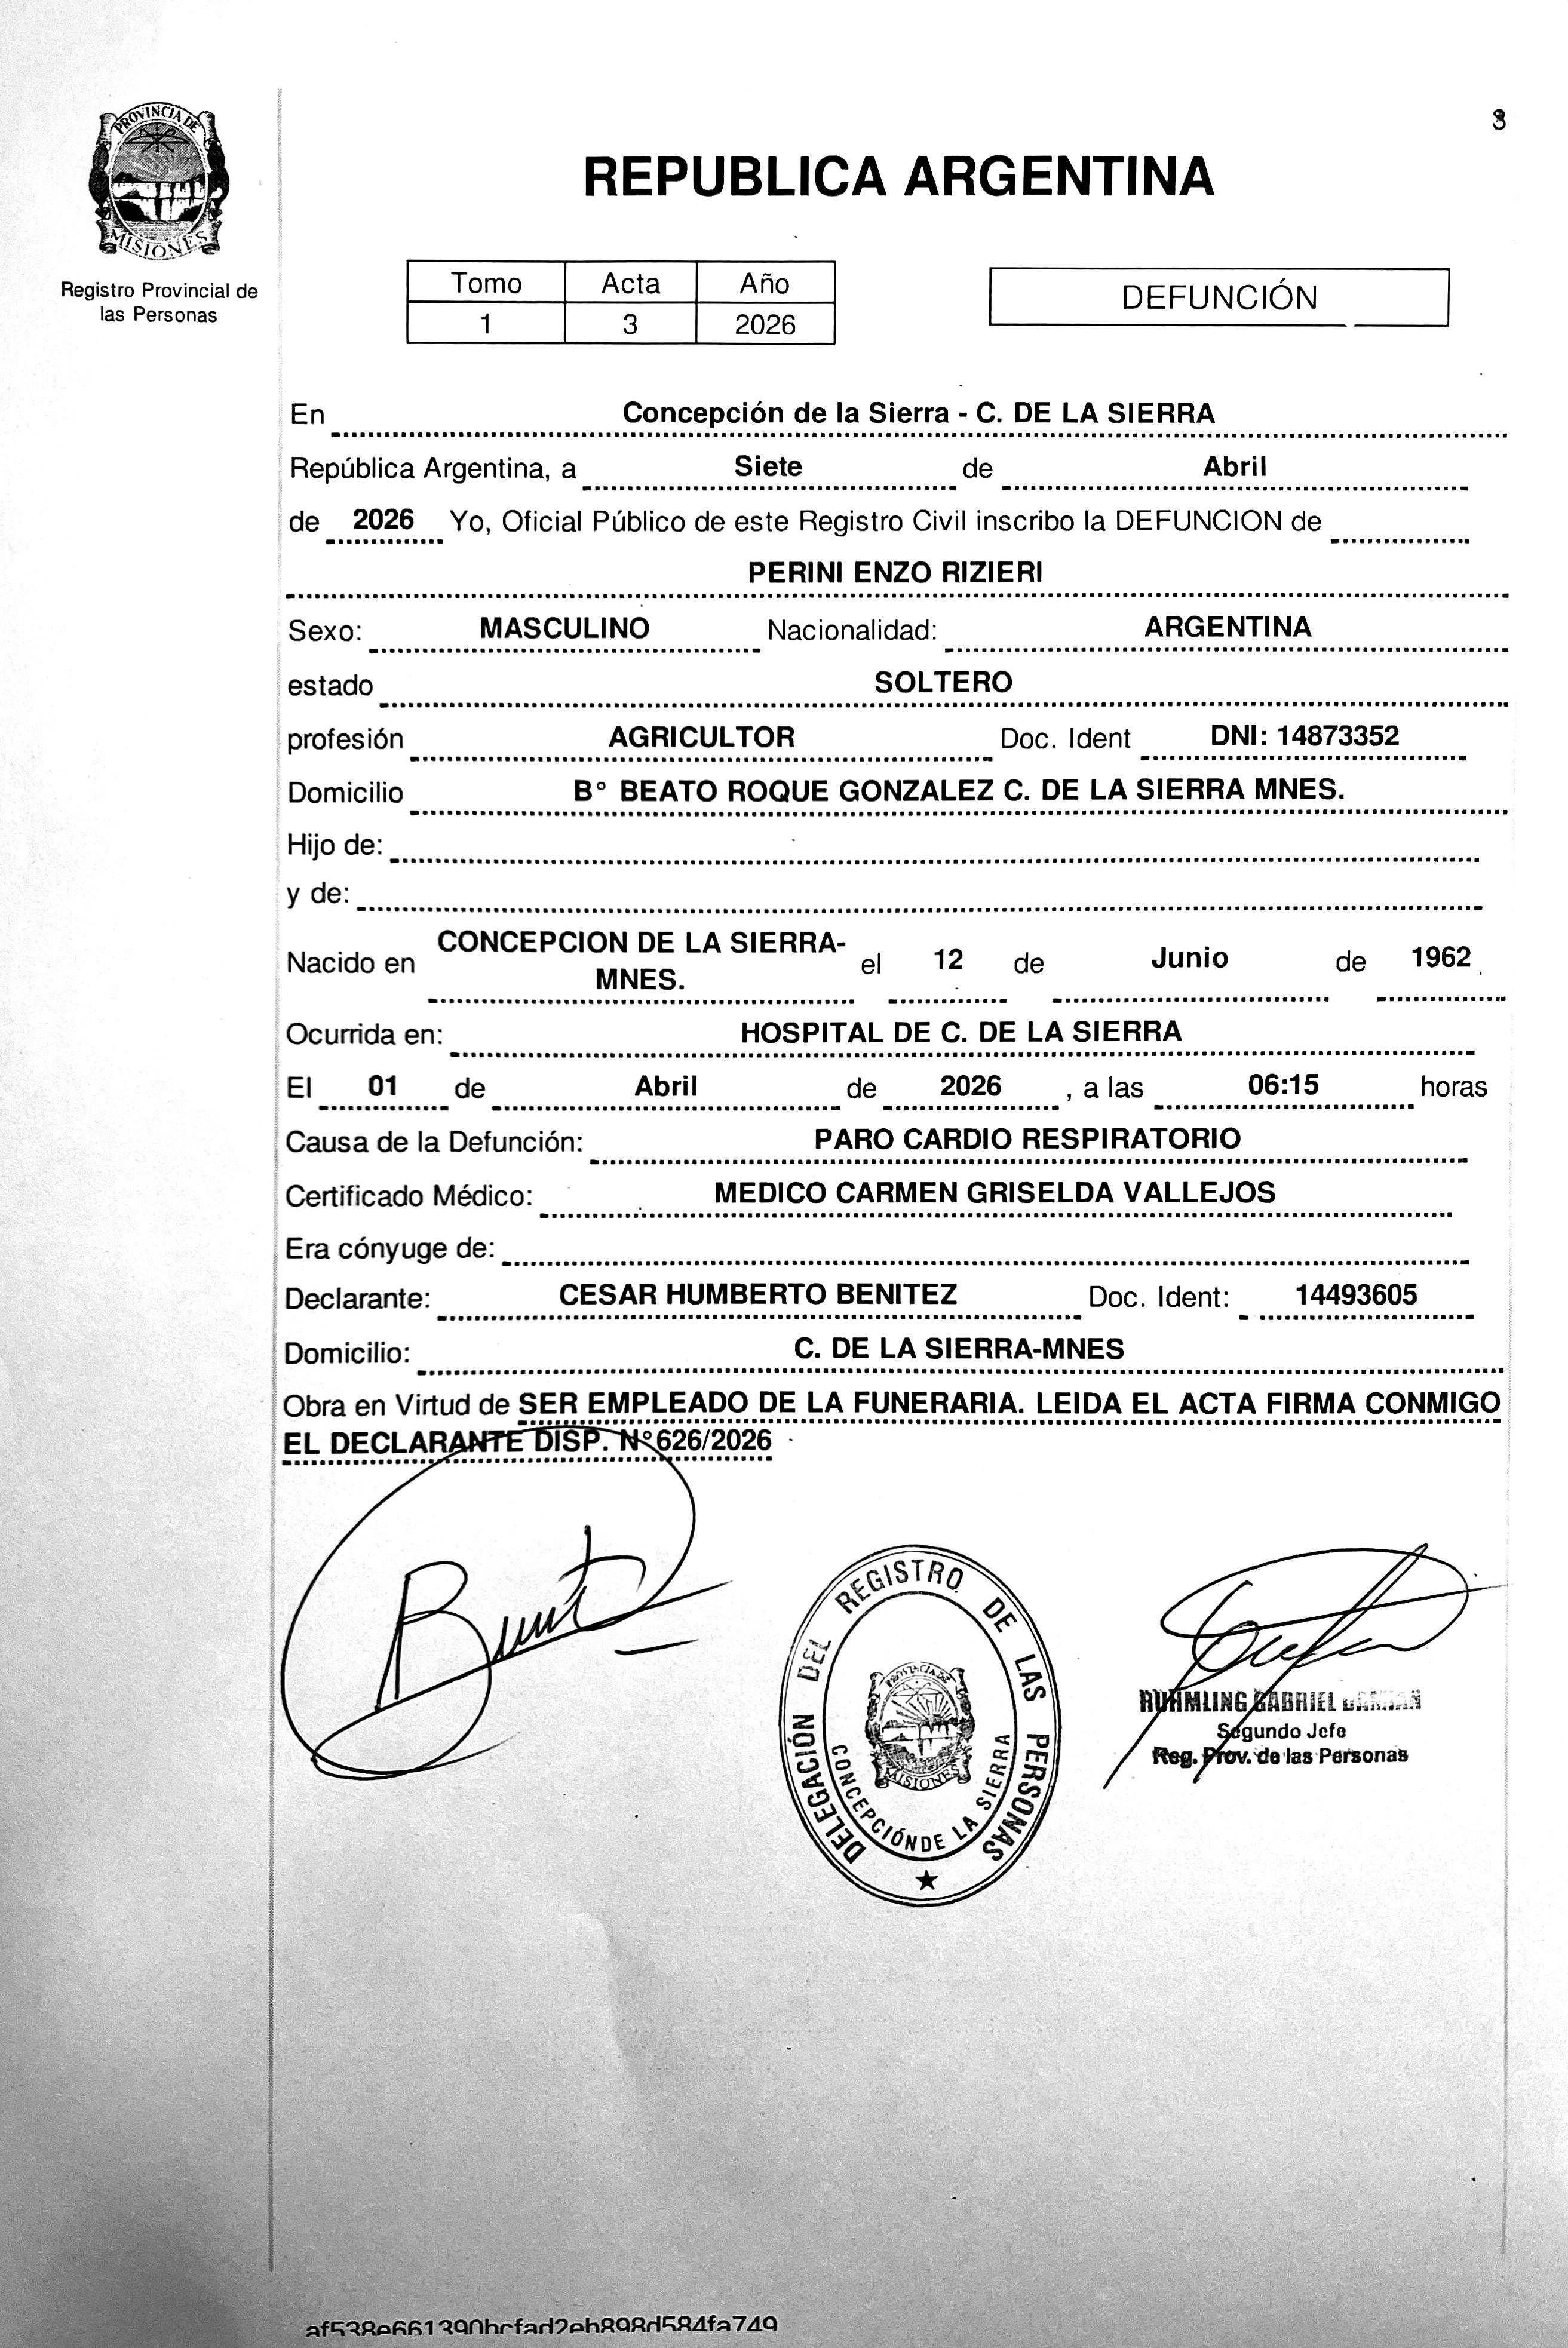 PROVINCIA DE
MISIONES
Registro Provincial de
las Personas
REPUBLICA ARGENTINA
Tomo Acta Año
1 3 2026
DEFUNCIÓN
En Concepción de la Sierra - C. DE LA SIERRA
República Argentina, a Siete de Abril
de 2026 Yo, Oficial Público de este Registro Civil inscribo la DEFUNCION de
PERINI ENZO RIZIERI
Sexo: MASCULINO Nacionalidad: ARGENTINA
estado SOLTERO
profesión AGRICULTOR Doc. Ident DNI: 14873352
Domicilio B° BEATO ROQUE GONZALEZ C. DE LA SIERRA MNES.
Hijo de:
y de:
Nacido en CONCEPCION DE LA SIERRA-
MNES. el 12 de Junio de 1962
Ocurrida en: HOSPITAL DE C. DE LA SIERRA
El 01 de Abril de 2026 , a las 06:15 horas
Causa de la Defunción: PARO CARDIO RESPIRATORIO
Certificado Médico: MEDICO CARMEN GRISELDA VALLEJOS
Era cónyuge de:
Declarante: CESAR HUMBERTO BENITEZ Doc. Ident: 14493605
Domicilio: C. DE LA SIERRA-MNES
Obra en Virtud de SER EMPLEADO DE LA FUNERARIA. LEIDA EL ACTA FIRMA CONMIGO
EL DECLARANTE DISP. N°626/2026
DELEGACIÓN DEL REGISTRO DE LAS PERSONAS
CONCEPCIÓN DE LA SIERRA
PROVINCIA DE
MISIONES
RUHMLING GABRIEL
Segundo Jefe
Reg. Prov. de las Personas
af538e661390bcfad2eb898d584fa749